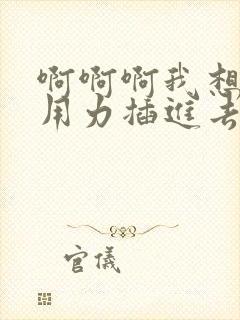 啊啊啊我想
用力插進去
官儀